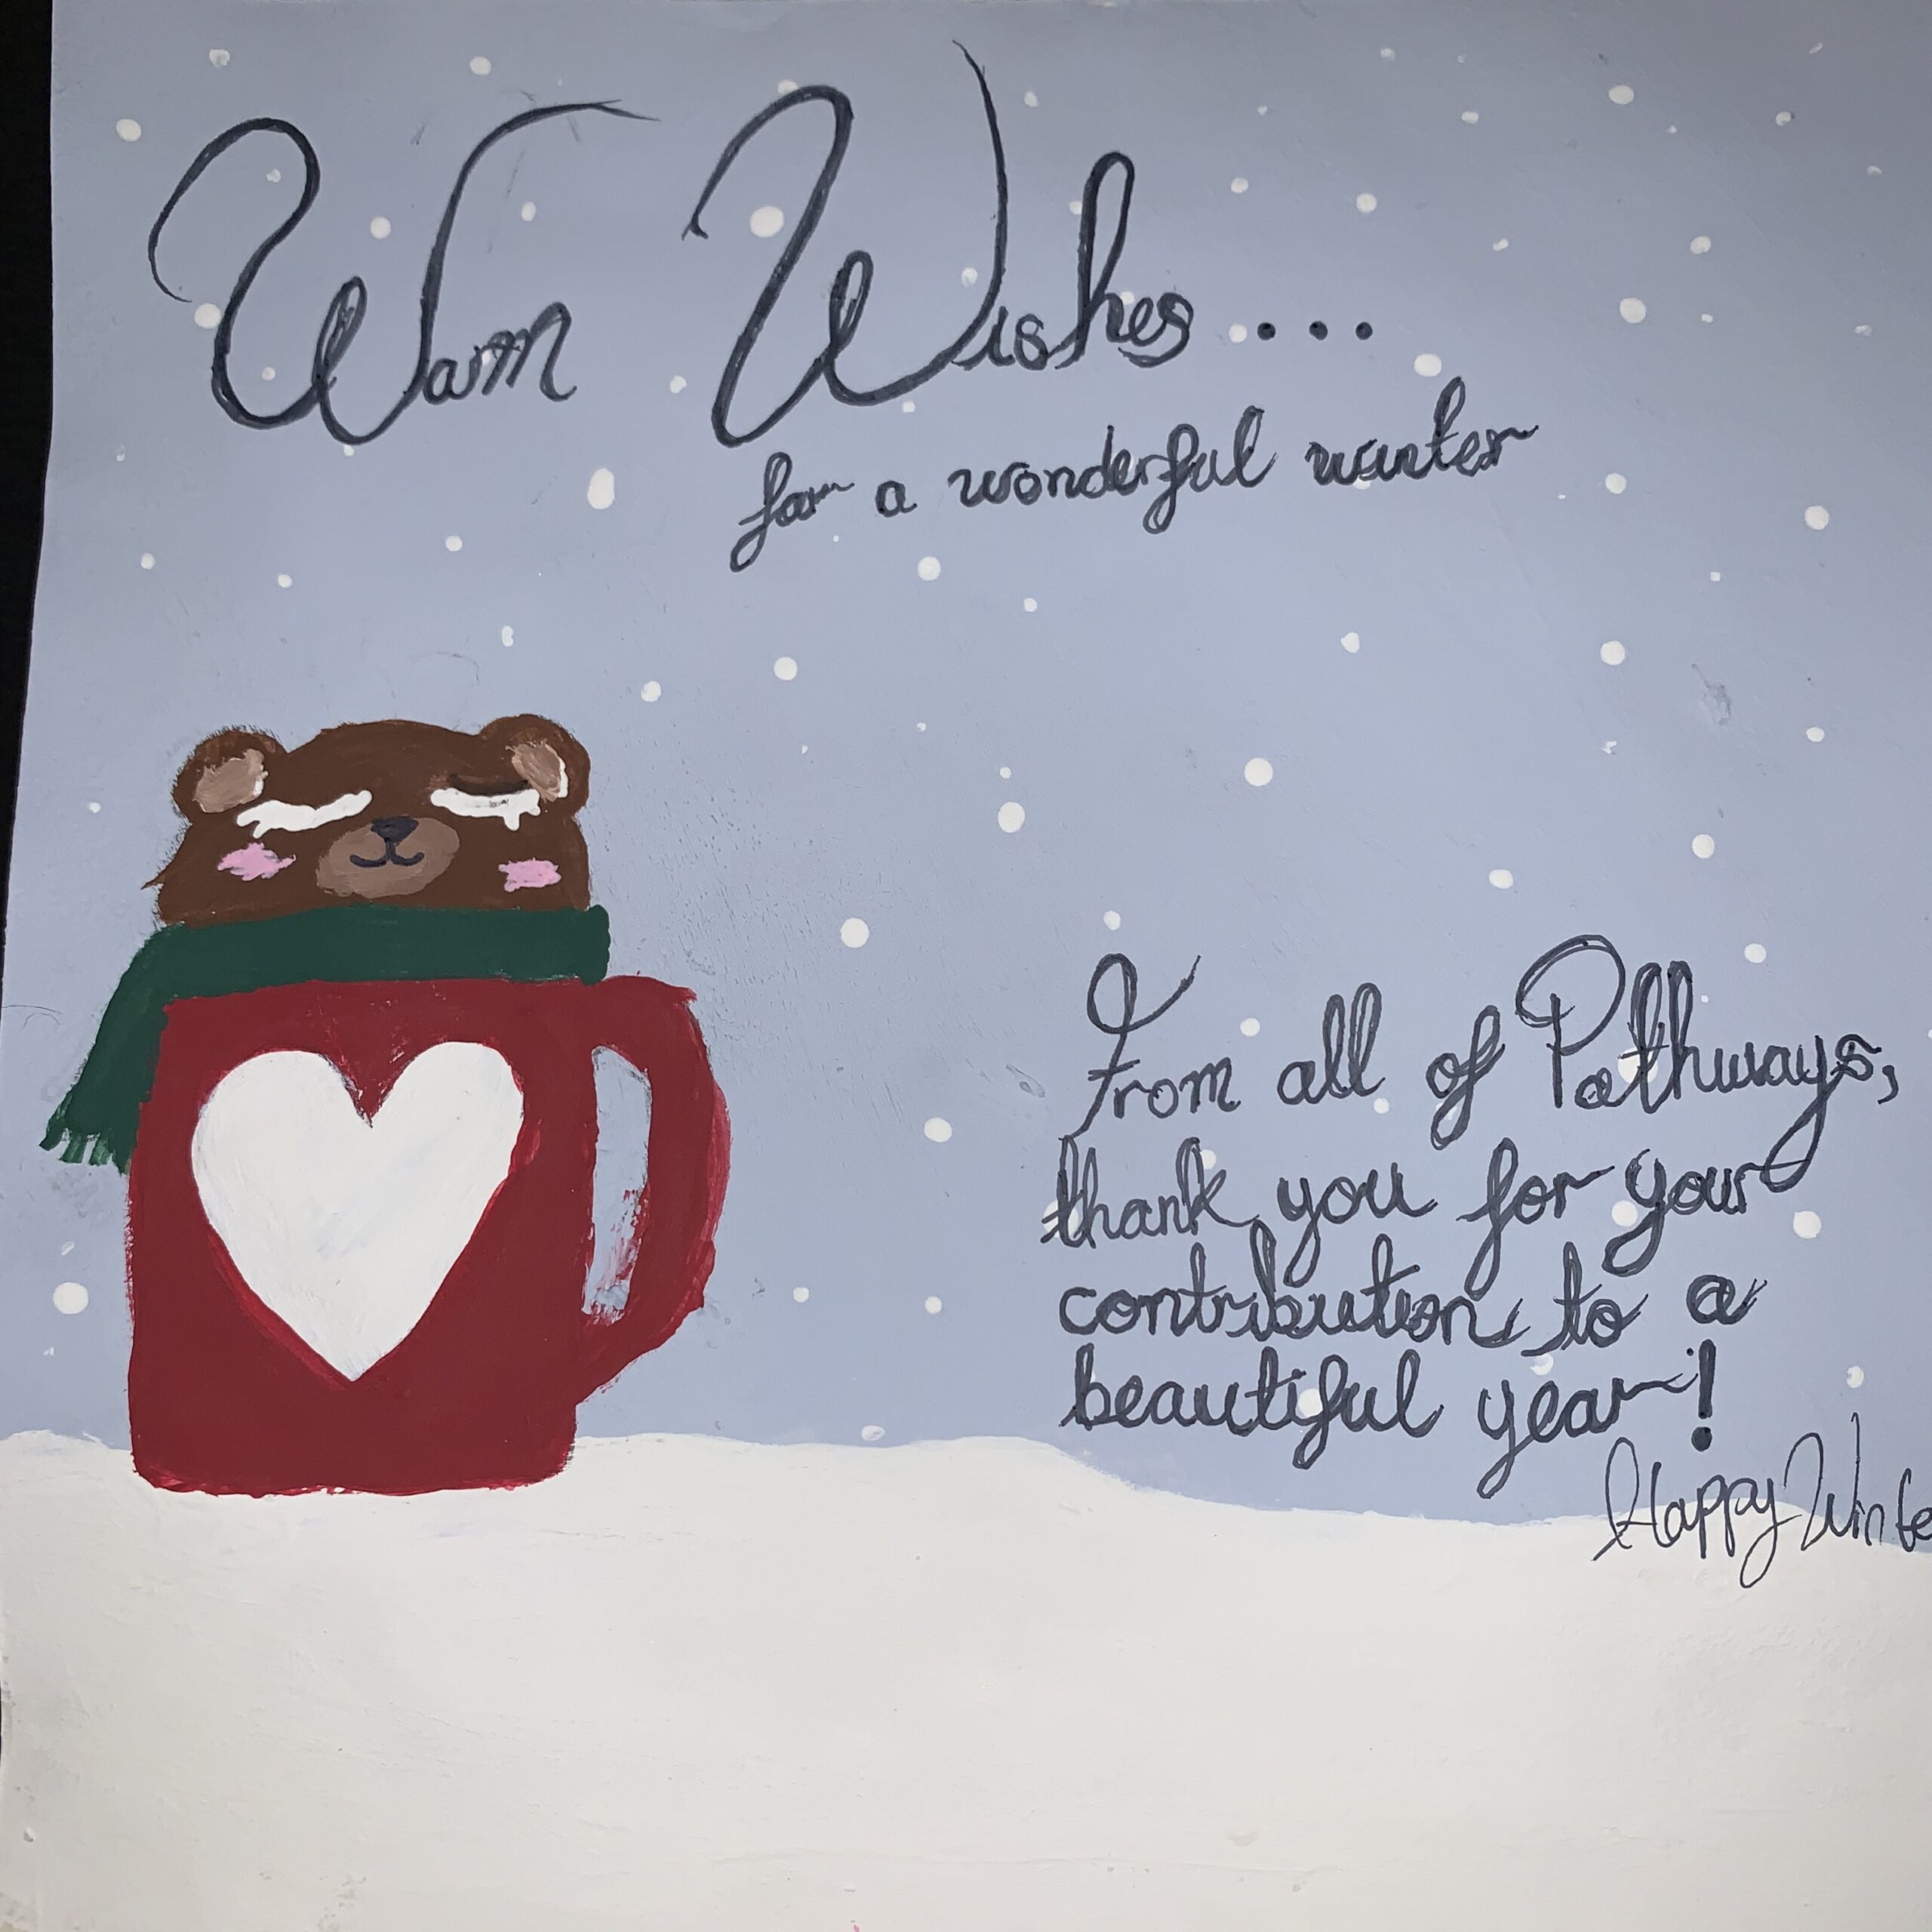 Warm Wishes....
for a wonderful winter
From all of Pathways,
thank you for your
contribution to a
beautiful year!
Happy Winte